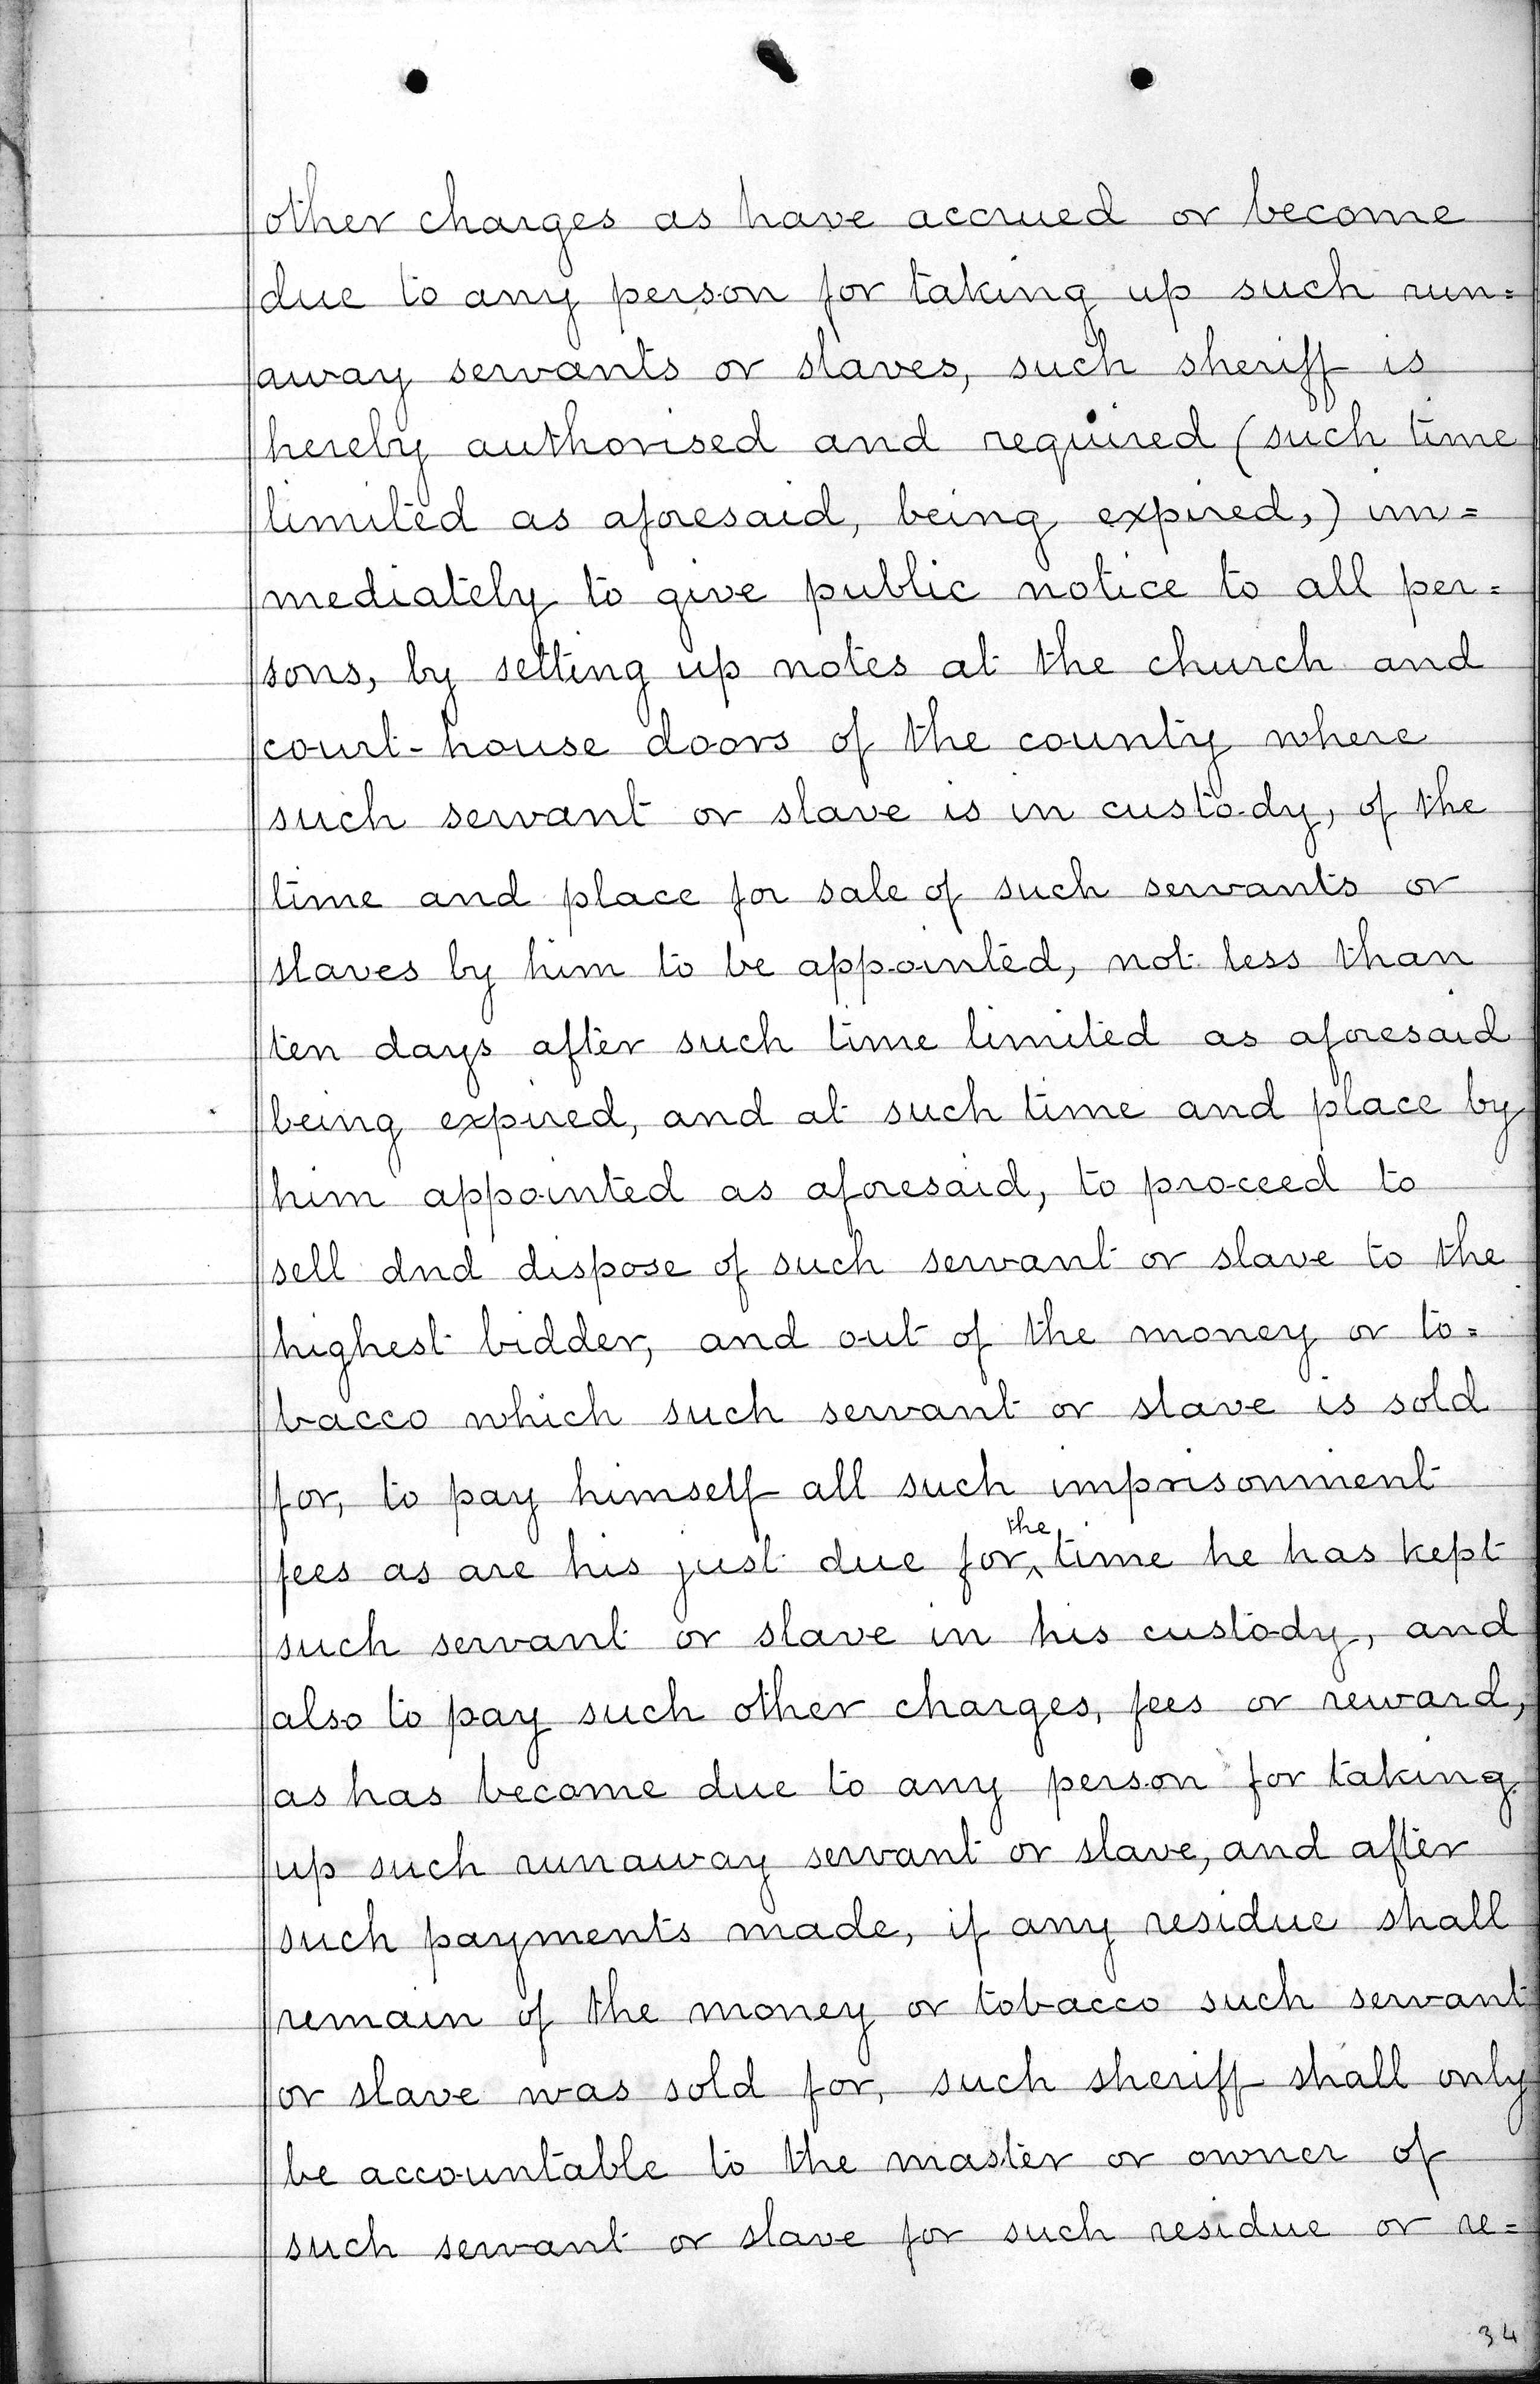 other charges as have accrued or become
due to any person for taking up such run=
away servants or slaves, such sheriff is
hereby authorised and required (such time
limited as aforesaid, being expired,) im=
mediately to give public notice to all per=
sons, by setting up notes at the church and
court-house doors of the county where
such servant or slave is in custody, of the
time and place for sale of such servants or
slaves by him to be appointed, not less than
ten days after such time limited as aforesaid
being expired, and at such time and place by
him appointed as aforesaid, to proceed to
sell dnd dispose of such servant or slave to the
highest bidder, and out of the money or to=
bacco which such servant or slave is sold
for, to pay himself all such imprisonment
fees as are his just due for, the time he has kept
such servant or slave in his custody, and
also to pay such other charges, fees or reward,
as has become due to any person for taking
up such runaway servant or slave, and after
such payments made, if any residue shall
remain of the money or tobacco such servant
or slave was sold for, such sheriff shall only
be accountable to the master or owner of
such servant or slave for such residue or re=
34